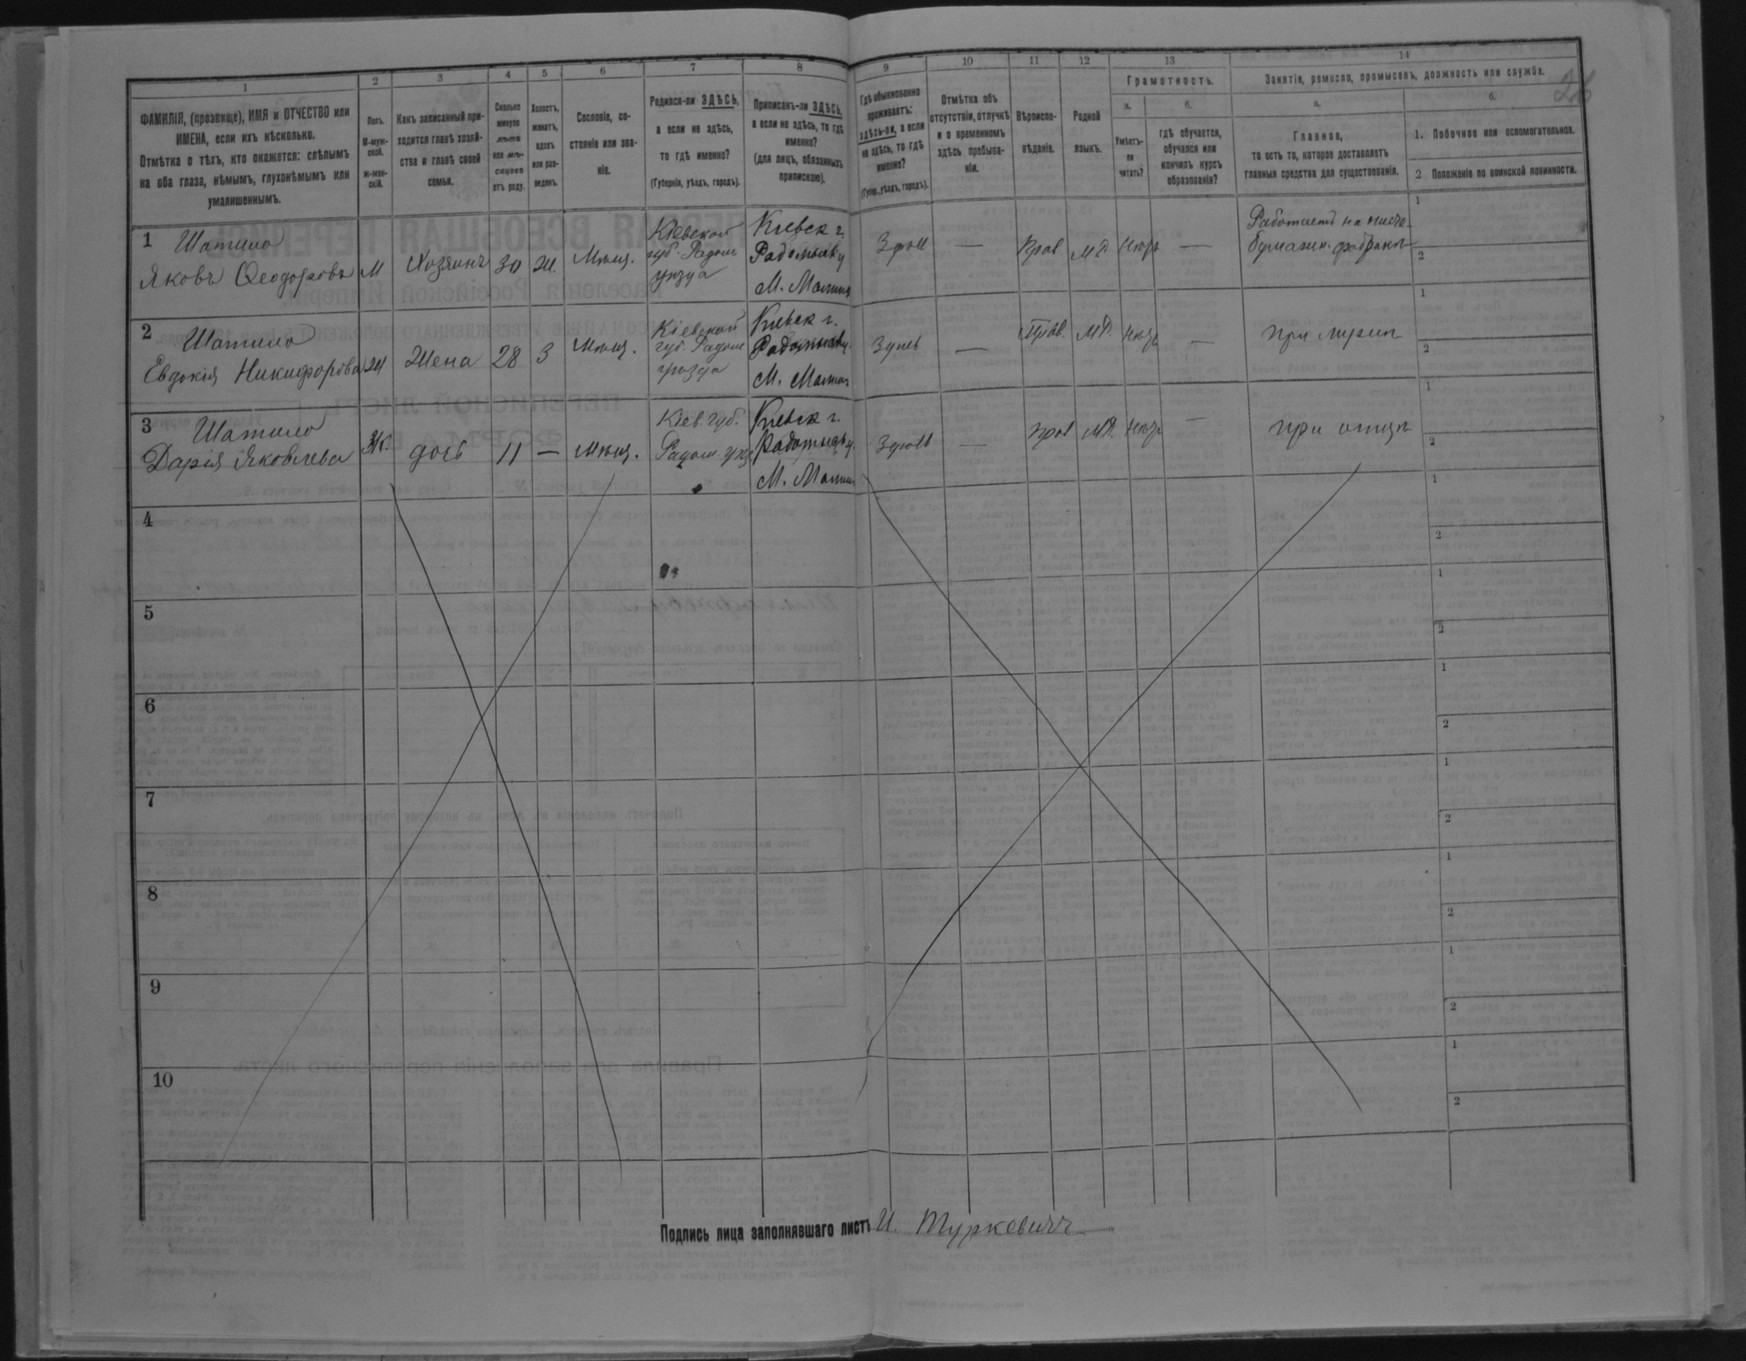 1
2
3
4
5
6
7
8
9
10
11
12
13
14
ФАМИЛІЯ, (прозвище), ИМЯ и ОТЧЕСТВО или
ИМЕНА, если ихъ нѣсколько.
Отмѣтка о тѣхъ, кто окажется: слѣпымъ
на оба глаза, нѣмымъ, глухонѣмымъ или
умалишеннымъ.
Полъ.
М-муж-
ской.
ж-жен-
скій.
Какъ записанный при-
ходится главѣ хозяй-
ства и главѣ своей
семьи.
Сколько
минуло
лѣтъ
или мѣ-
сяцевъ
отъ роду.
Холостъ,
женатъ,
вдовъ
или раз-
веденъ.
Сословіе, со-
стояніе или зва-
ніе.
Родился-ли ЗДѢСЬ,
а если не здѣсь,
то гдѣ именно?
(Губернія, уѣздъ, городъ).
Приписанъ-ли ЗДѢСЬ,
а если не здѣсь, то гдѣ
именно?
(для лицъ, обязанныхъ
припискою).
Гдѣ обыкновенно
проживаетъ:
здѣсь-ли, а если
не здѣсь, то гдѣ
именно?
(Губер., уѣздъ, городъ).
Отмѣтка объ
отсутствіи, отлучкѣ
и о временномъ
здѣсь пребыва-
ніи.
Вѣроиспо-
вѣданіе.
Родной
языкъ.
Грамотность.
а.
б.
Умѣетъ-
ли
читать?
гдѣ обучается,
обучался или
кончилъ курсъ
образованія?
Занятіе, ремесло, промыселъ, должность или служба.
а.
б.
Главное,
то есть то, которое доставляетъ
главныя средства для существованія.
1. Побочное или вспомогательное.
2 Положеніе по воинской повинности.
26
1 Шатило
Яковъ Ѳеодоровъ
М
Хозяинъ
30
Ж.
Мѣщ.
Кіевской
губ. Радом
уѣзда
Кіевск г.
Радомыс у
М. Малина
Здѣсь
—
Прав.
МР.
Нѣтъ
—
Работаетъ на писче-
бумажн. фабрикѣ
1
2
2 Шатило
Евдокія Никифорова
Ж
Жена
28
З
Мѣщ.
Кіевской
губ. Радом
уѣзда
Кіевск г.
Радомыс у.
М. Малина
Здѣсь
—
Прав.
МР.
Нѣтъ
—
при мужѣ
1
2
3 Шатило
Дарія Яковлева
Ж.
дочь
11
—
Мѣщ.
Кіев. губ.
Радом. уѣз.
Кіевск г.
Радомыс у.
М. Малина
Здѣсь
—
Прав
МР.
Нѣтъ
—
при отцѣ
1
2
4
1
2
5
1
2
6
1
2
7
1
2
8
1
2
9
1
2
10
1
2
Подпись лица заполнявшаго листъ И. Туркевичъ